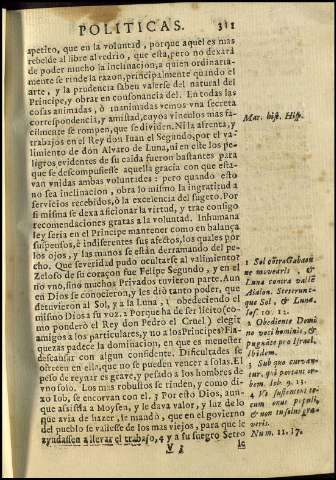 POLITICAS. 311
apetito, que en la voluntad, porque aquel es mas
rebelde al libre alvedrio, que esta, pero no dexará
de poder mucho la inclinacion, a quien ordinaria-
mente se rinde la razon, principalmente quando el
arte, y la prudencia saben valerse del natural del
Principe, y obrar en consonancia del. En todas las
cosas animadas, ò inanimadas vemos vna secreta
correspondencia, y amistad, cuyos vinculos mas fa-
cilmente se rompen, que se dividen. Ni la afrenta, y
trabajos en el Rey don Iuan el Segundo, por el va-
limiento de don Alvaro de Luna, ni en este los pe-
ligros evidentes de su caida fueron bastantes para
que se descompusiesse aquella gracia con que esta-
van vnidas ambas voluntades: pero quando esto
no sea inclinacion, obra lo mismo la ingratitud a
servicios recebidos, ò la excelencia del sugeto. Por
si misma se dexa aficionar la virtud, y trae consigo
recomendaciones gratas a la voluntad. Inhumana
ley seria en el Principe mantener como en balança
suspensos, è indiferentes sus afectos, los quales por
los ojos, y las manos se estàn derramando del pe-
cho. Que severidad pudo ocultarse al valimiento?
Zeloso de su coraçon fue Felipe Segundo, y en èl
no vno, sino muchos Privados tuvieron parte. Aun
en Dios se conocieron, y les diò tanto poder, que
detuvieron al Sol, y a la Luna, 1 obedeciendo el
mismo Dios a su voz. 2 Porque ha de ser licito (co-
mo ponderò el Rey don Pedro el Cruel) elegir
amigos a los particulares, y no a los Principes? Fla-
quezas padece la dominacion, en que es menester
descansar con algun confidente. Dificultades se
ofrecen en ella, que no se pueden vencer a solas. El
peso de reynar es grave, y pesado a los hombros de
vno solo. Los mas robustos se rinden, y como di-
xo Iob, se encorvan con el. 3 Por esto Dios, aun-
que assistia a Moysen, y le dava valor, y luz de lo
que avia de hazer, le mandò, que en el govierno
del pueblo se valiesse de los mas viejos, para que le
ayudassen a llevar el trabajo, 4 y a su suegro Setro
V
le
Mar. hist. Hisp.
1 Sol contra Gabaon
ne movearis, &
Luna contra vallẽ
Aialon. Steterunt-
que Sol, & Luna,
Ios. 10. 12.
2 Obediente Domi-
no voci hominis, &
pugnãte pro Israel,
ibidem.
3 Sub quo curvan-
tur, qui portant or-
bem. Iob 9. 13.
4 Vt sustentent te-
cum onus populi,
& non tu solus gra-
veris.
Num. 11. 17.